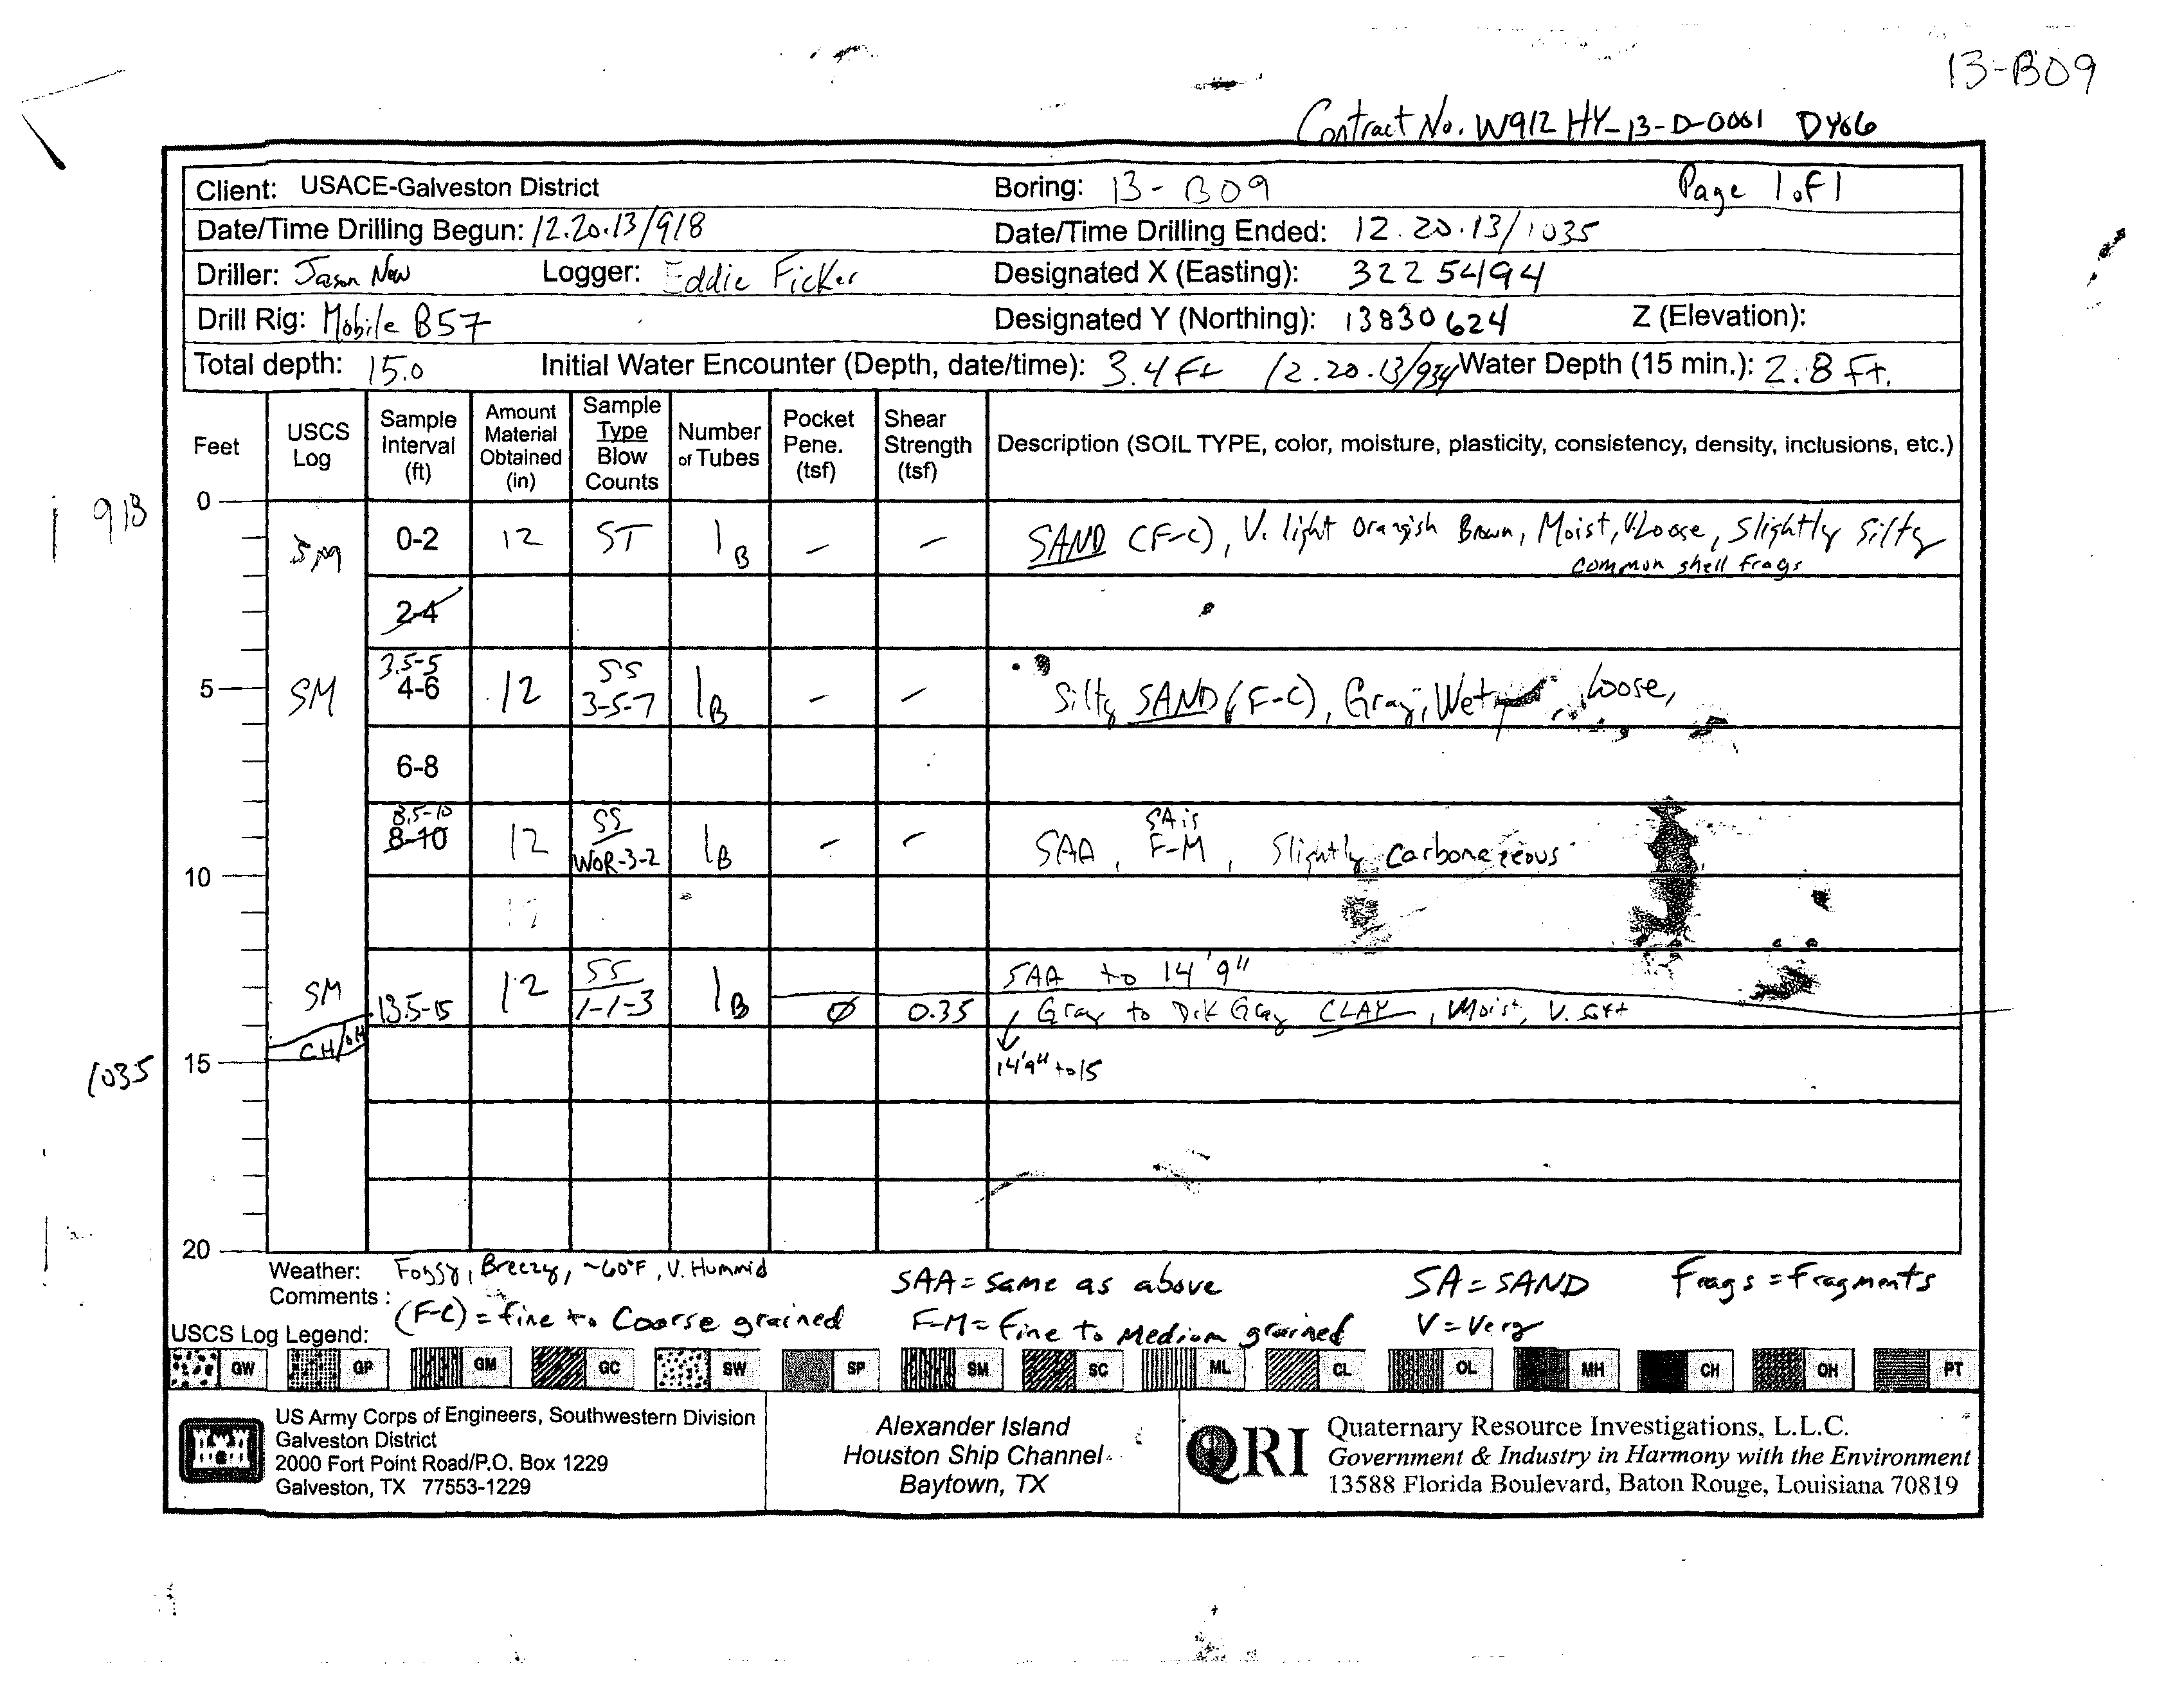 13-B09
Contract No. W912 HY-13-D-0001 DY06
Client: USACE-Galveston District Boring: 13-B09 Page 1 of 1
Date/Time Drilling Begun: 12.20.13/918 Date/Time Drilling Ended: 12.20.13/1035
Driller: Jason New Logger: Eddie Ficker Designated X (Easting): 3225494
Drill Rig: Mobile B57 Designated Y (Northing): 13830624 Z (Elevation):
Total depth: 15.0 Initial Water Encounter (Depth, date/time): 3.4 Ft 12.20.13/934 Water Depth (15 min.): 2.8 Ft.
Feet USCS Log Sample Interval (ft) Amount Material Obtained (in) Sample Type Blow Counts Number of Tubes Pocket Pene. (tsf) Shear Strength (tsf) Description (SOIL TYPE, color, moisture, plasticity, consistency, density, inclusions, etc.)
0
918 SM 0-2 12 ST 1 B – – SAND (F-C), V. light Orangish Brown, Moist, V.Loose, Slightly Silty
common shell frags
2-4
3.5-5
5 SM 4-6 12 SS 3-5-7 1 B – – Silty SAND (F-C), Gray, Wet, Loose,
6-8
8.5-10
8-10 12 SS WOR-3-2 1 B – – SAA, SA is F-M, Slightly Carboneceous
10
SAA to 14'9"
SM 13.5-15 12 SS 1-1-3 1 B Ø 0.35 Gray to Drk Gray CLAY, Moist, V. Soft
CH/OH
1035 15 14'9" to 15
20
Weather: Foggy, Breezy, ~60°F, V. Hummid SAA = Same as above SA = SAND Frags = Fragments
Comments: (F-C) = fine to Coarse grained F-M = fine to Medium grained V = Very
USCS Log Legend:
GW GP GM GC SW SP SM SC ML CL OL MH CH OH PT
US Army Corps of Engineers, Southwestern Division
Galveston District
2000 Fort Point Road/P.O. Box 1229
Galveston, TX 77553-1229
Alexander Island
Houston Ship Channel
Baytown, TX
QRI
Quaternary Resource Investigations, L.L.C.
Government & Industry in Harmony with the Environment
13588 Florida Boulevard, Baton Rouge, Louisiana 70819